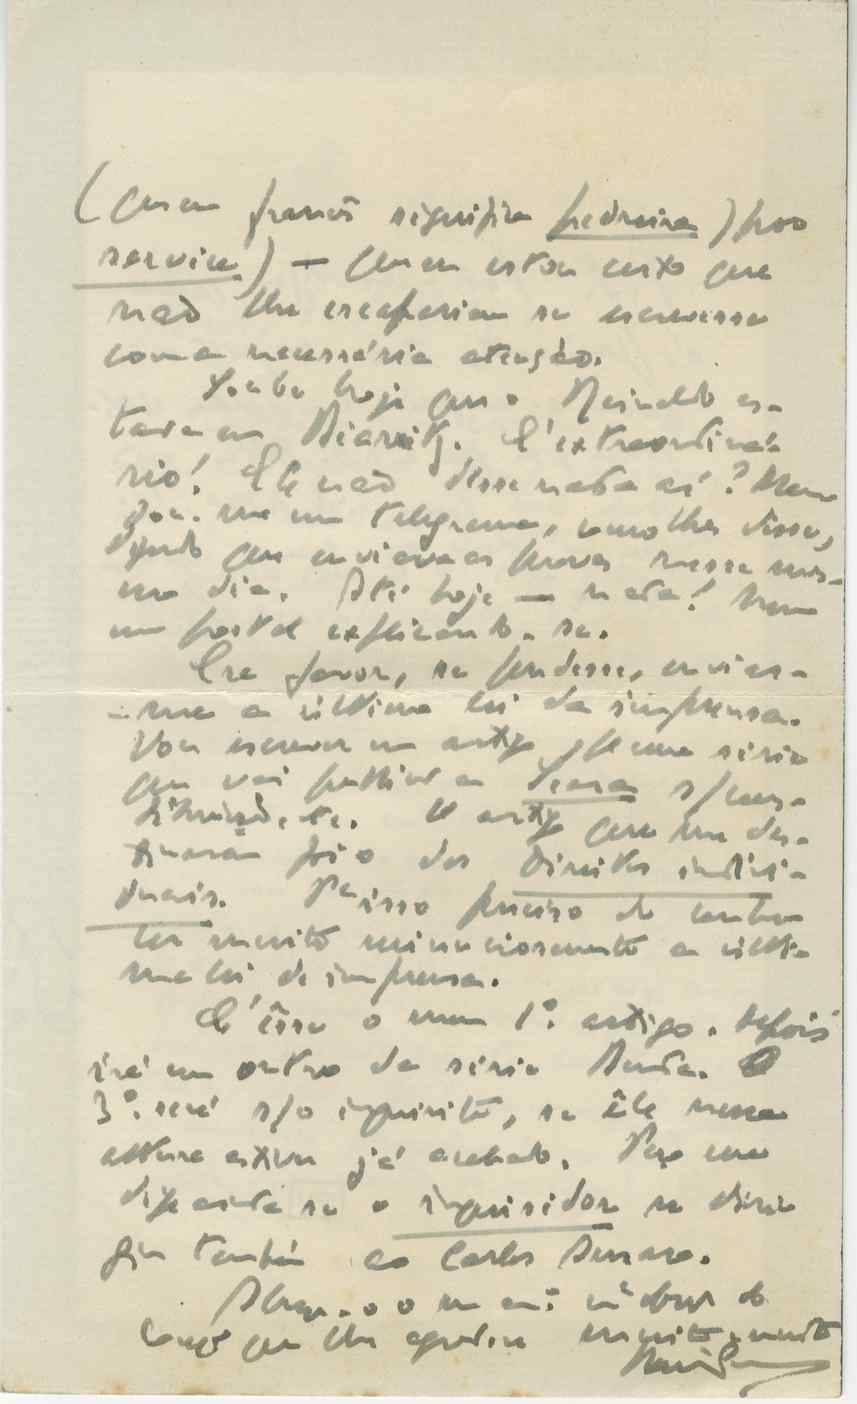 (que em francês significa pedreira) por
service) — que eu estou certo que
não lhe escapariam se escrevesse
com a necessária atenção.
Soube hoje que o Reinaldo es-
tava em Biarritz. É extraordiná-
rio! Ele não disse nada aí? Man-
dou-me um telegrama, como lhes disse,
dizendo que enviava as provas nesse mes-
mo dia. Até hoje — nada! Nem
um postal explicando-se.
Era favor, se pudesse, enviar-
-me a última lei da imprensa.
Vou escrever um artigo pª uma série
que vai publicar a Seara s/ cons-
tituição, etc. O artigo que me des-
tinaram foi o dos direitos indivi-
duais. Pª isso preciso de conhe-
cer muito minuciosamente a últi-
ma lei de imprensa.
É êsse o meu 1º. artigo. Depois
irá um outro da série Benda. O
3º. será s/o inquérito, se êle nessa
altura estiver já acabado. Peço me
diga ainda se o inquisidor se diri-
giu também ao Carlos
Abraço-o o seu
que lhe agradece muito e muito